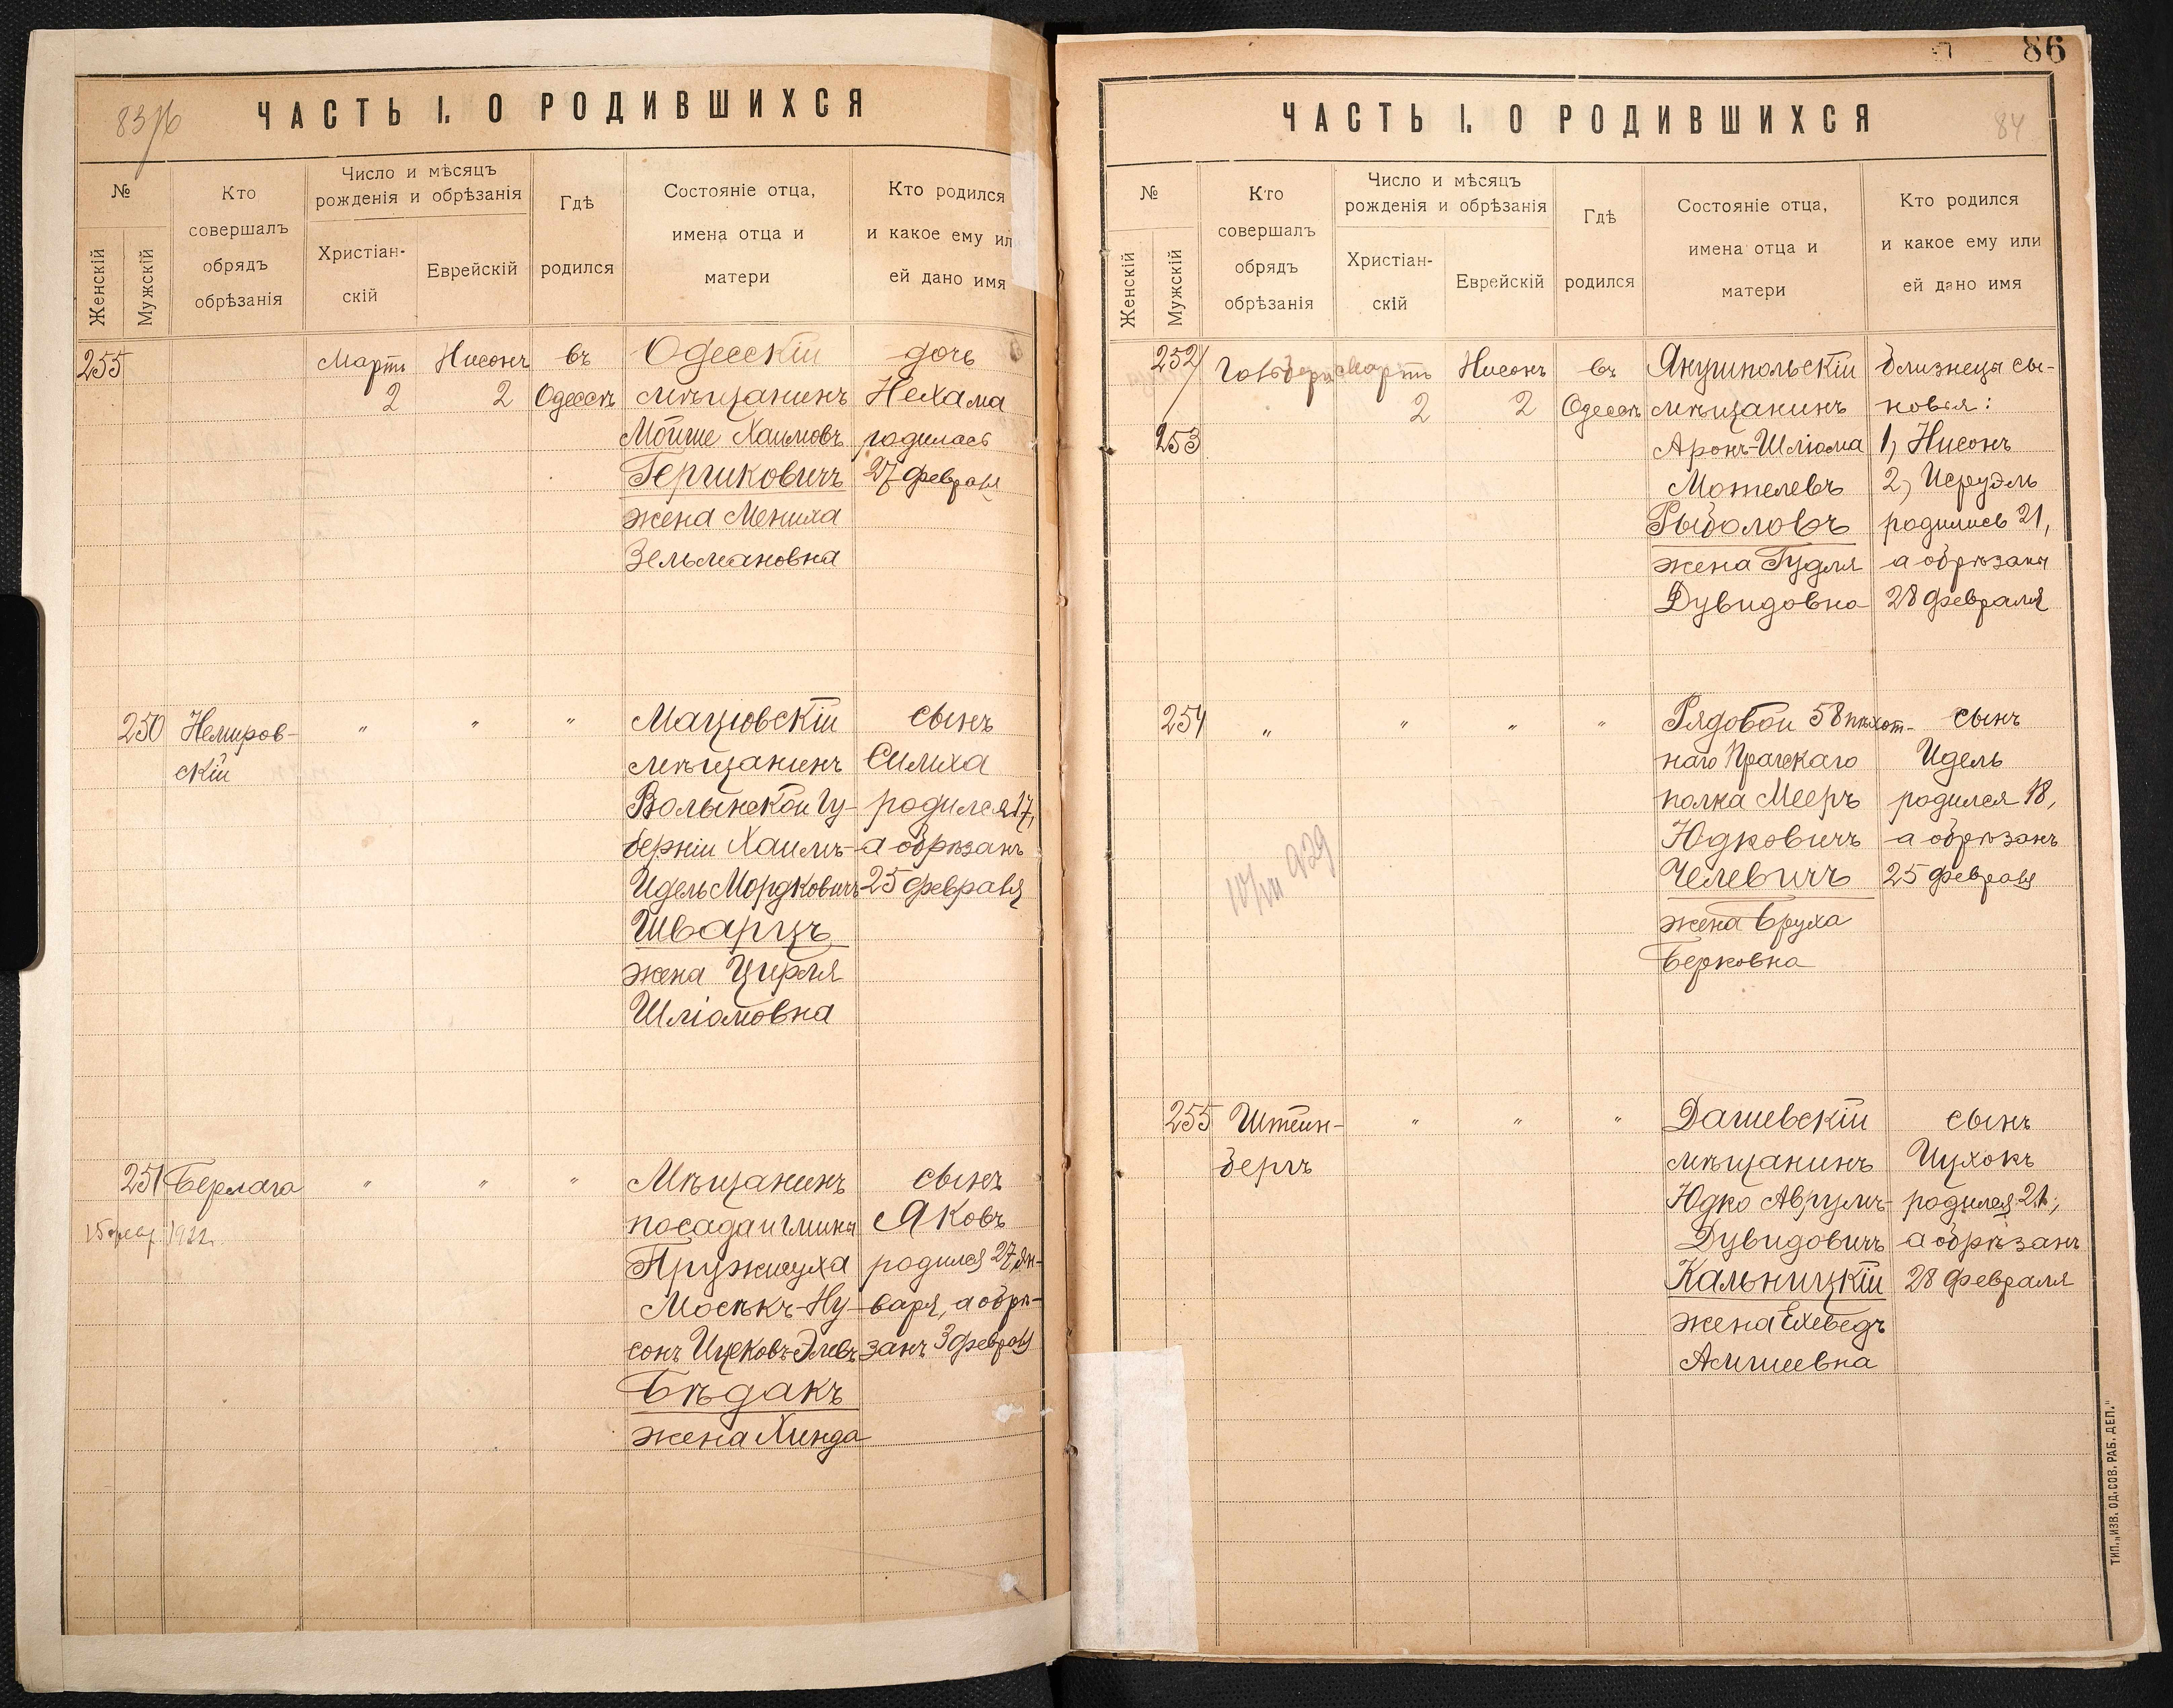 83/6
ЧАСТЬ I. О РОДИВШИХСЯ
№
Женскій
Мужскій
Кто
совершалъ
обрядъ
обрѣзанія
Число и мѣсяцъ
рожденія и обрѣзанія
Христіан-
скій
Еврейскій
Гдѣ
родился
Состояніе отца,
имена отца и
матери
Кто родился
и какое ему ил
ей дано имя
255
Мартъ
2
Нисонъ
2
въ
Одессѣ
Одесскій
мѣщанинъ
Мойше Хаимовъ
Гершковичъ
жена Мениха
Зельмановна
дочь
Нехама
родилась
27 февраля
250
Немиров-
скій
"
"
"
Мацювскій
мѣщанинъ
Волынской Гу-
берніи Хаимъ-
Идель Мордковичъ
Шварцъ
жена Цирля
Шліомовна
сынъ
Симха
родился 17,
а обрѣзанъ
25 февраля
251
Берлага
1922
"
"
"
Мѣщанинъ
посада
Мосѣкъ-Ну-
сонъ
Бѣдакъ
жена Хинда
сынъ
Яковъ
родился 27 Ян-
варя, а обрѣ-
занъ 3 февраля
86
ЧАСТЬ I. О РОДИВШИХСЯ
84
№
Женскій
Мужскій
Кто
совершалъ
обрядъ
обрѣзанія
Число и мѣсяцъ
рожденія и обрѣзанія
Христіан-
скій
Еврейскій
Гдѣ
родился
Состояніе отца,
имена отца и
матери
Кто родился
и какое ему или
ей дано имя
252
253
Мартъ
2
Нисонъ
2
въ
Одессѣ
Янушпольскій
мѣщанинъ
Аронъ-Шліома
Мотелевъ
Рыболовъ
жена Гудля
Дувидовна
близнецы сы-
новья:
1, Нисонъ
2, Исруэль
родились 21,
а обрѣзаны
28 февраля
254
"
"
"
"
Рядовой 58 пѣхот-
наго Прагскаго
полка Мееръ
Юдковичъ
Челевичъ
жена Бруха
Берковна
сынъ
Идель
родился 18,
а обрѣзанъ
25 февраля
255
Штейн-
бергъ
"
"
"
Дашевскій
мѣщанинъ
Юдко Аврумъ-
Дувидовичъ
Кальницкій
жена Ехеведъ
сынъ
Ицхокъ
родился 21,
а обрѣзанъ
28 февраля
ТИП. „ИЗВ. ОД. СОВ. РАБ. ДЕП."